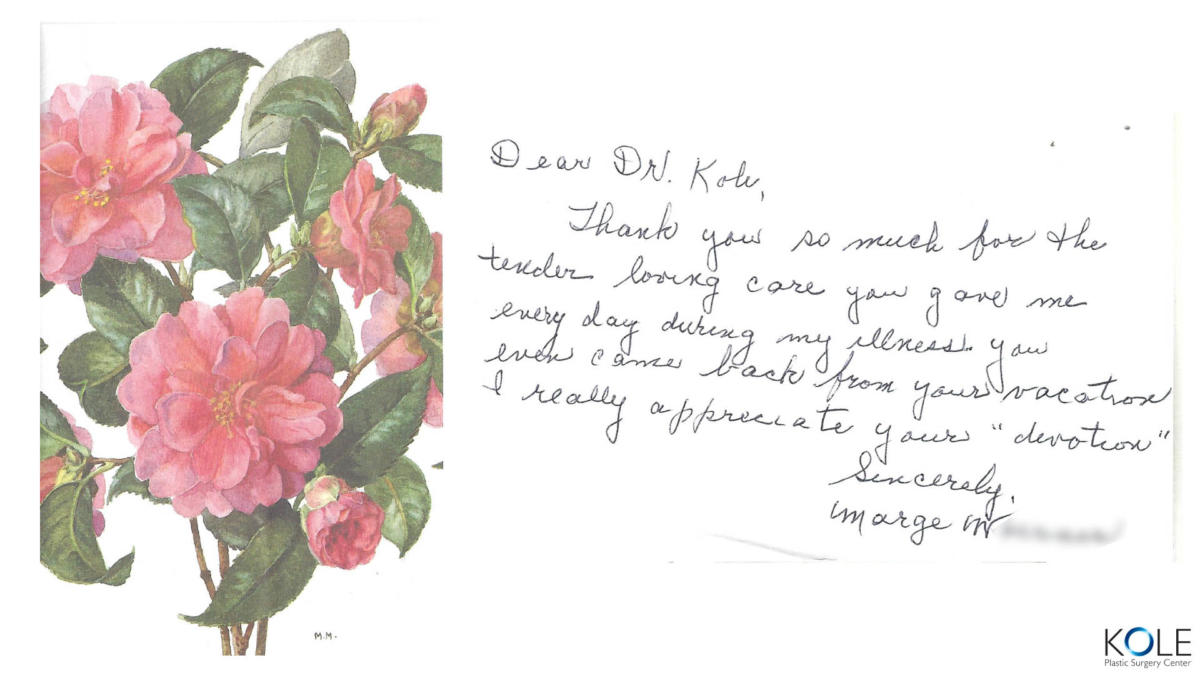 Dear Dr. Kole,
Thank you so much for the
tender loving care you gave me
every day during my illness. You
even came back from your vacation
I really appreciate your "devotion"
Sincerely,
Marge
M.M.
KOLE
Plastic Surgery Center